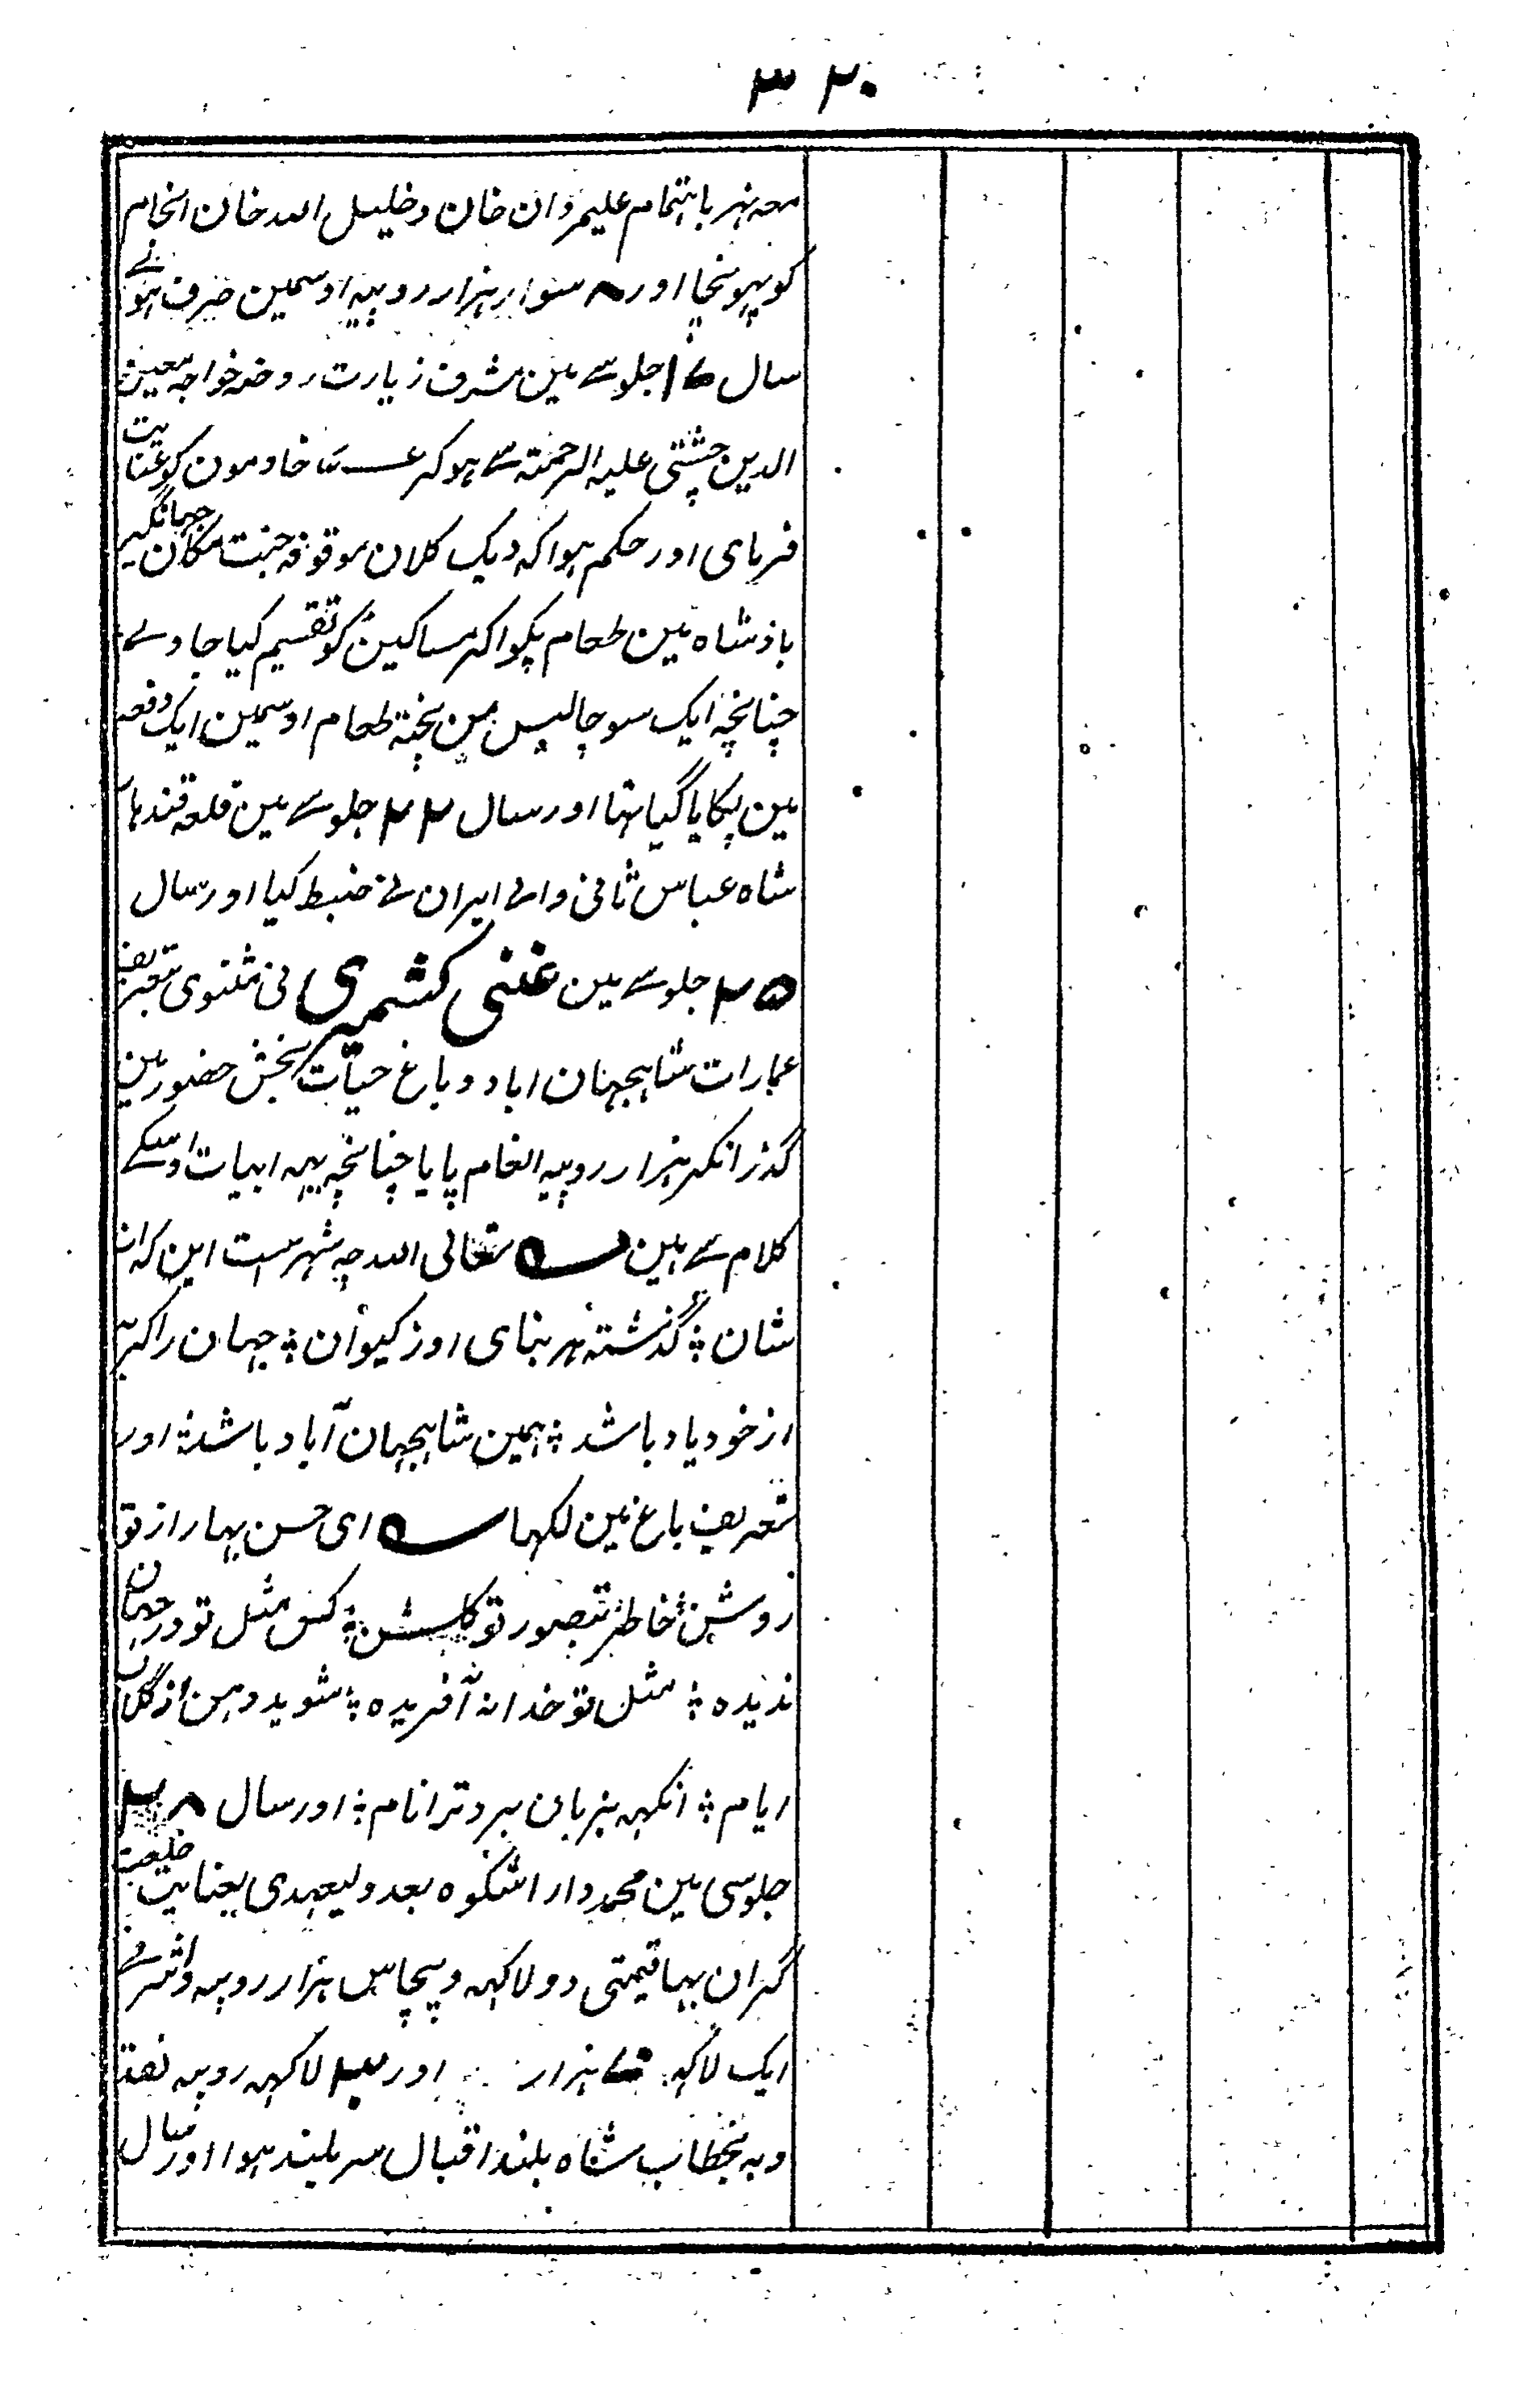 ۳۲۰
معہ نہر باہتمام علیمردان خان وخلیل اللہ خان انجام
کو پہونچا اور ۸ سنوار ہزار روپیہ اوسمین صرف ہوئے
سال ۱۶ جلوسے مین مشرف زیارت روضہ خواجہ معین
الدین چشتی علیہ الرحمتہ سے ہوکر خادمون کو عنایت
فرمای اور حکم ہوا کہ دیک کلان موقوفہ جنت مکان جہانگیر
بادشاہ مین طعام پکواکر مساکین کو تقسیم کیا جاوے
چنانچہ ایک سو چالیس من پختہ طعام اوسمین ایک دفعہ
مین پکایا گیا تہا اور سال ۲۲ جلوسے مین قلعہ قندہار
شاہ عباس ثانی والے ایران نے ضبط کیا اور سال
۲۵ جلوسے مین غنی کشمیری نی مثنوی تعریف
عمارات شاہجہان اباد و باغ حیات بخش حضور مین
گذرانکر ہزار روپیہ انعام پایا چنانچہ یہہ ابیات اوسکے
کلام سے ہین ؎ تعالی اللہ چہ شہرست این کہ از
شان ؛ گذشتہ ہر بنای او ز کیوان ؛ جہان را گر
از خود یاد باشد ؛ ہمین شاہجہان آباد باشد ؛ اور
تعریف باغ مین لکہا ؎ ای حسن بہار از تو
روشن ؛ خاطر بتصور تو گلشن ؛ کس مثل تو در جہان
ندیدہ ؛ مثل تو خدا نہ آفریدہ ؛ شوید دہن از گلاب
ایام ؛ انکہہ بزبان برد ترا نام ؛ اور سال ۲۸
جلوسی مین محمد دارا شکوہ بعد ولیعہدی بعنایت خلعت
گران بہا قیمتی دو لاکہہ و پچاس ہزار روپیہ واشرفے
ایک لاکہہ ہزار اور ۳ لاکہہ روپیہ نقد
و بہ بخطاب شاہ بلند اقبال سر بلند ہوا اور سال